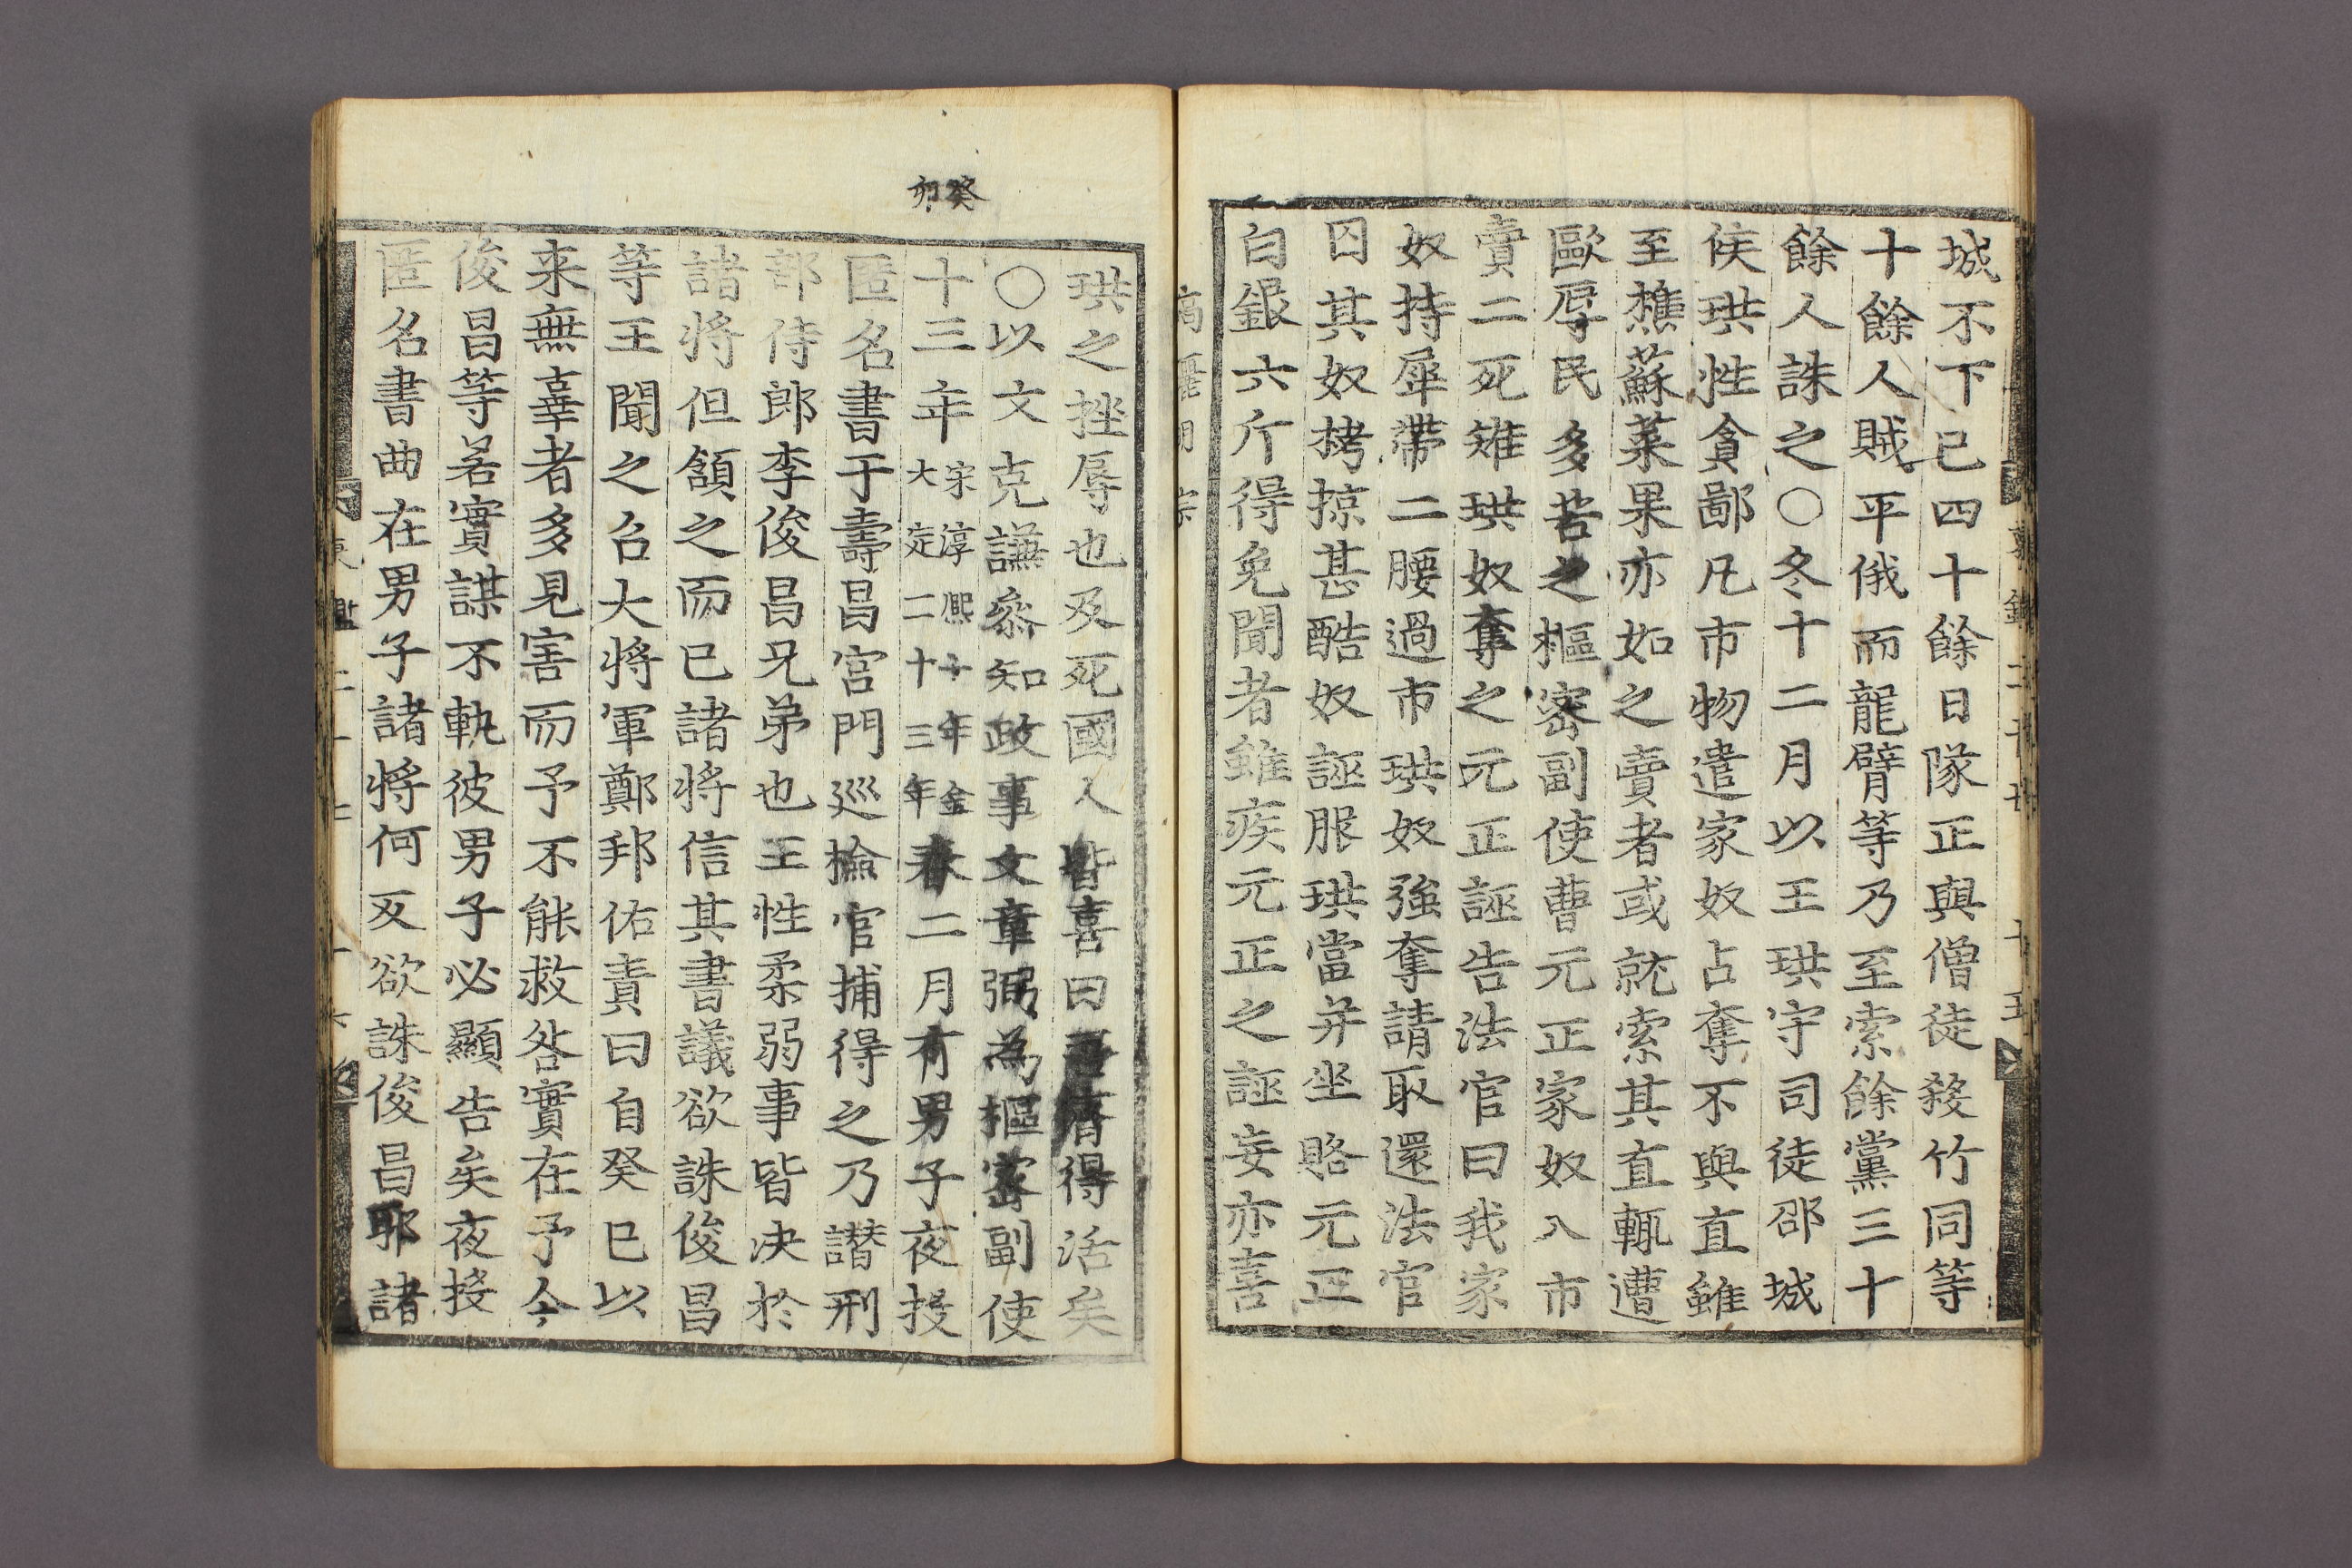 城不下已四十餘日隊正與僧徒殺竹同等
十餘人賊平俄而龍臂等乃至索餘黨三十
餘人誅之○冬十二月以王珙守司徒邵城
侯珙性貪鄙凡市物遣家奴占奪不與直雖
至樵蘇菜果亦如之賣者或就索其直輒遭
歐辱民多苦之樞密副使曹元正家奴入市
賣二死雉珙奴奪之元正誣告法官曰我家
奴持犀帶二腰過市珙奴強奪請取還法官
囚其奴栲掠甚酷奴誣服珙當并坐賂元正
白銀六斤得免聞者雖疾元正之誣妄亦喜
高麗明宗
癸卯
珙之挫辱也及死國人皆喜曰得活矣
○以文克謙叅知政事文章弼為樞密副使
十三年宋淳熙十年金大定二十三年春二月有男子夜投
匿名書于壽昌宮門巡檢官捕得之乃譛刑
部侍郎李俊昌兄弟也王性柔弱事皆决於
諸將但頷之而已諸將信其書議欲誅俊昌
等王聞之召大將軍鄭邦佑責曰自癸巳以
来無辜者多見害而予不能救咎實在予今
俊昌等若實謀不軌彼男子必顯告矣夜投
匿名書曲在男子諸將何反欲誅俊昌耶諸